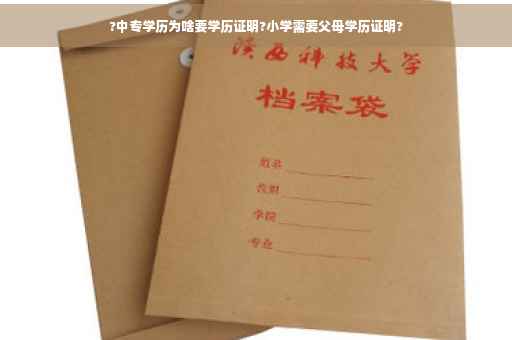 ?中专学历为啥要学历证明?小学需要父母学历证明?
陕西科技大学
档案袋
姓名
学院
专业